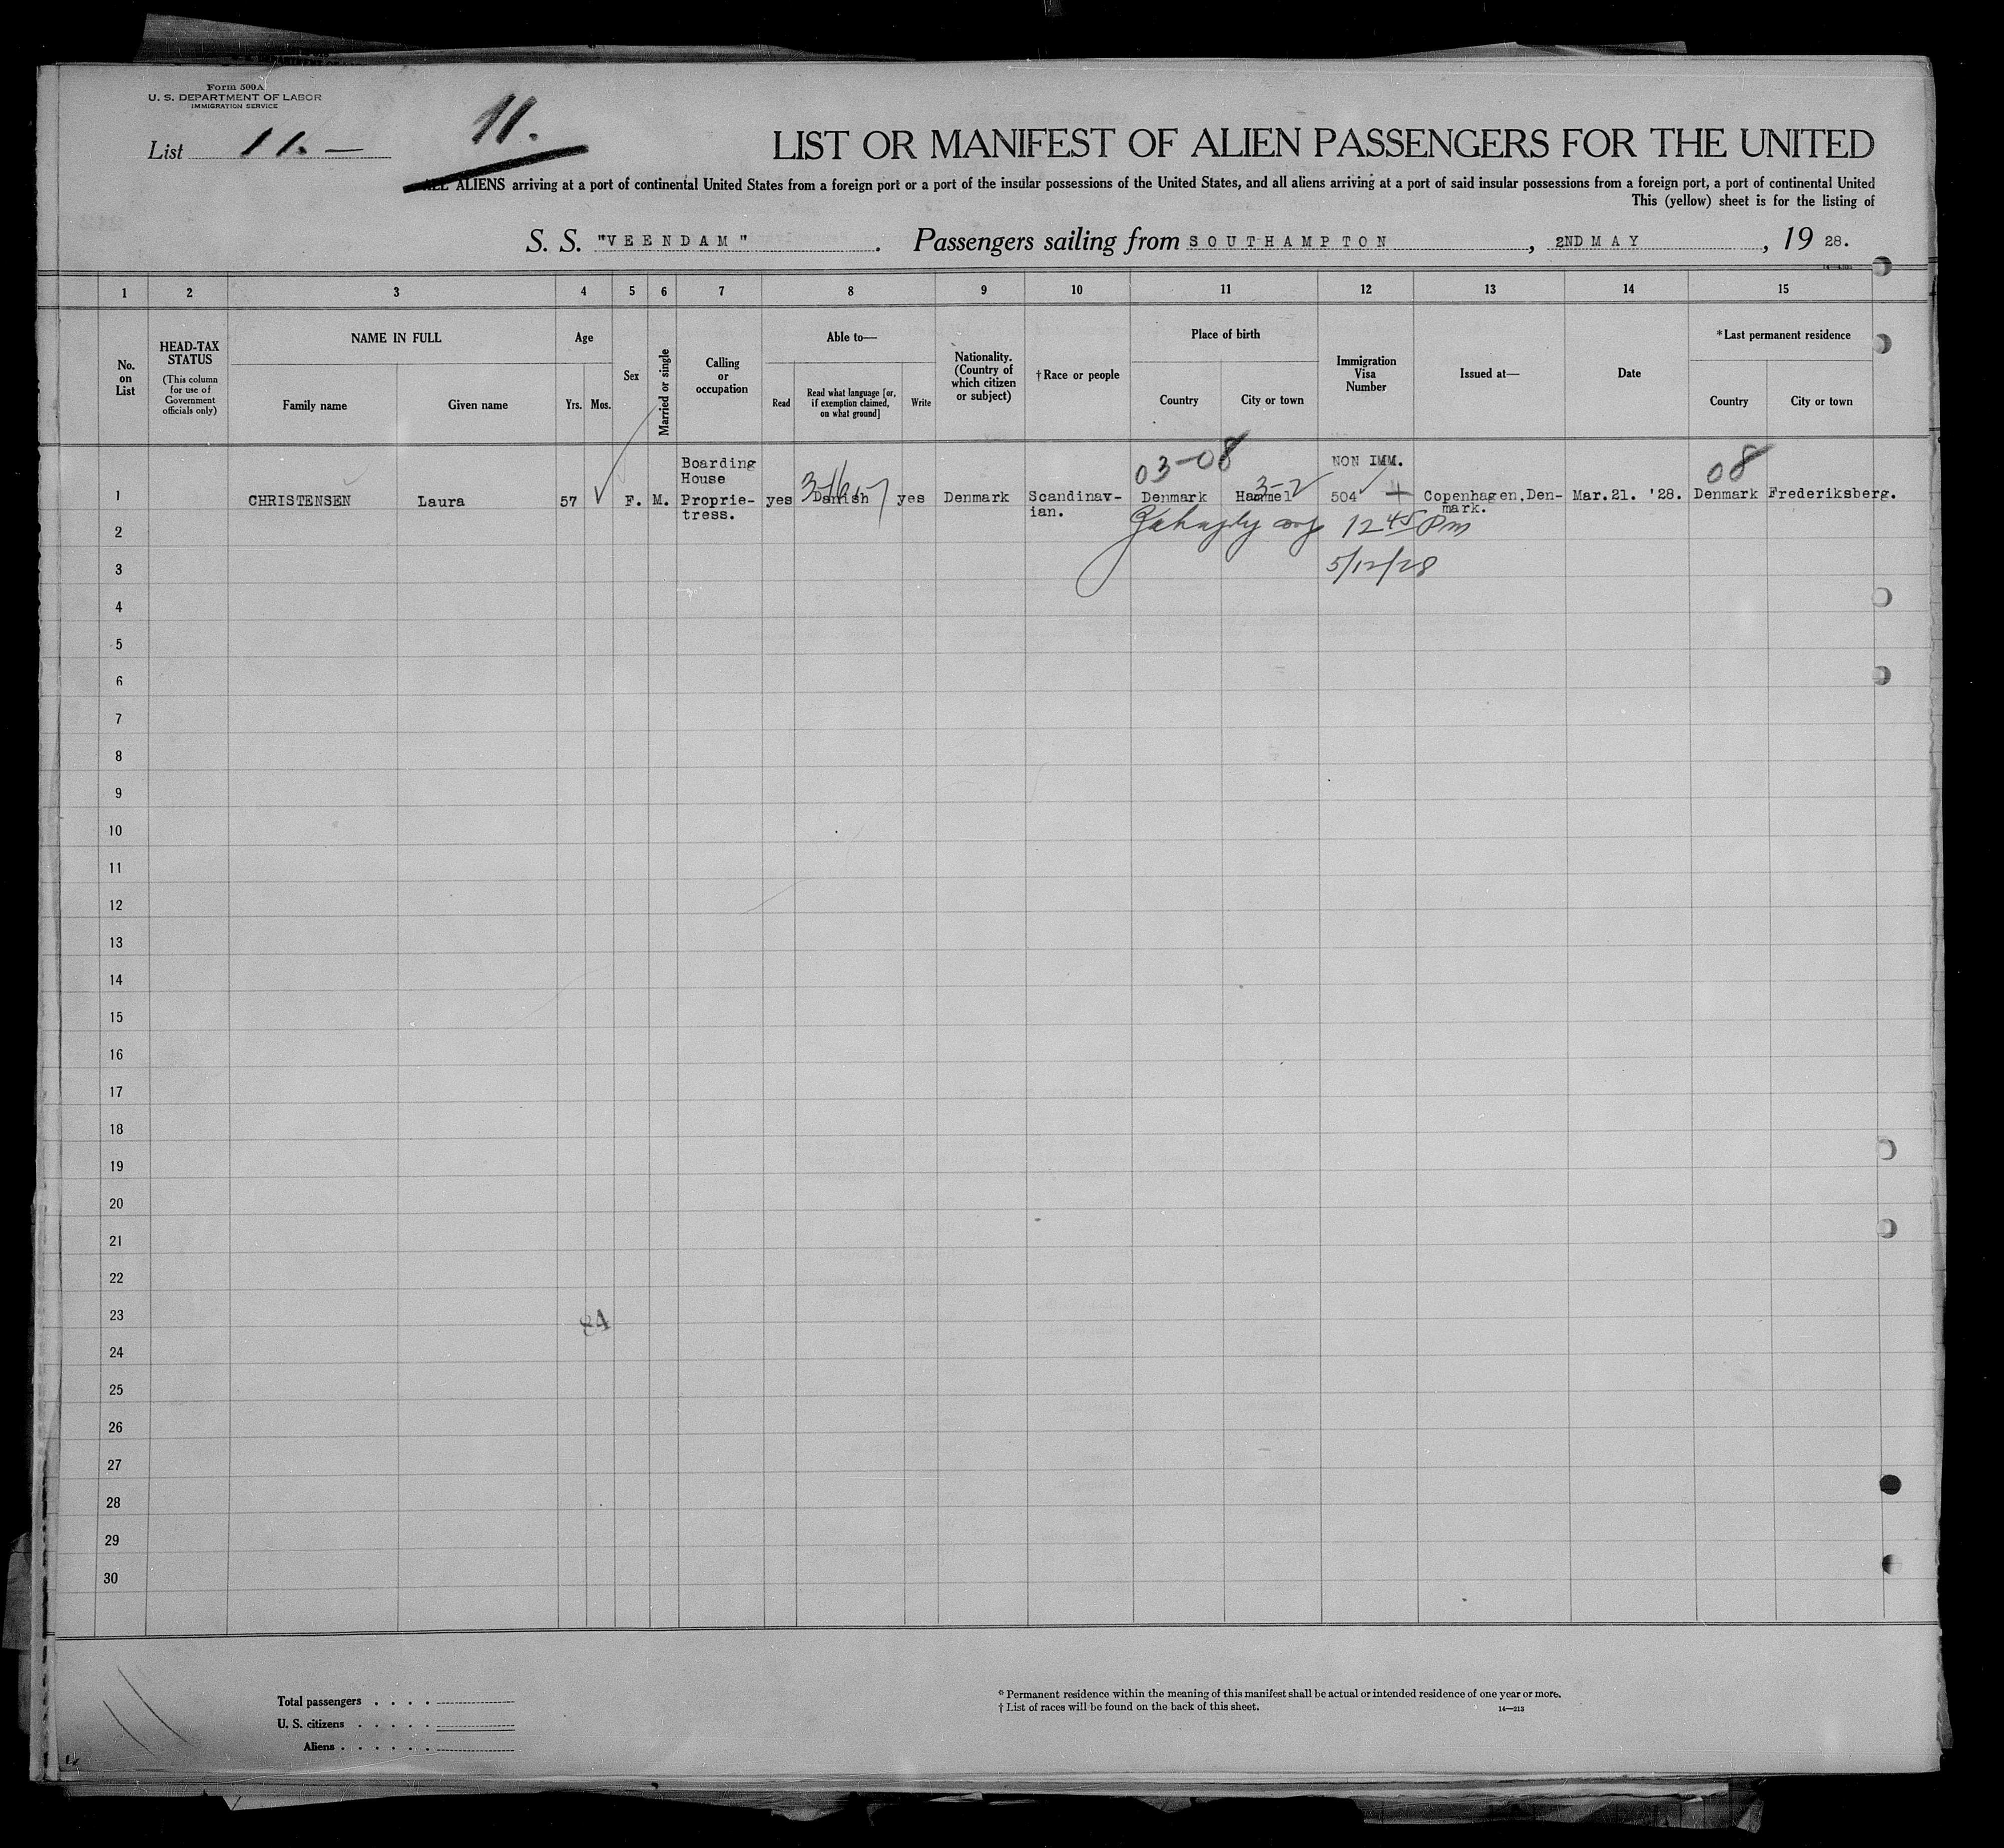 Form 500A
U. S. DEPARTMENT OF LABOR
IMMIGRATION SERVICE
List 11. —
11.
LIST OR MANIFEST OF ALIEN PASSENGERS FOR THE UNITED
ALL ALIENS arriving at a port of continental United States from a foreign port or a port of the insular possessions of the United States, and all aliens arriving at a port of said insular possessions from a foreign port, a port of continental United
This (yellow) sheet is for the listing of
S. S. "VEENDAM" . Passengers sailing from SOUTHAMPTON , 2ND MAY , 19 28.
1 2 3 4 5 6 7 8 9 10 11 12 13 14 15
No. on List
HEAD-TAX STATUS
(This column for use of Government officials only)
NAME IN FULL
Family name Given name
Age
Yrs. Mos.
Sex
Married or single
Calling or occupation
Able to—
Read
Read what language [or, if exemption claimed, on what ground]
Write
Nationality. (Country of which citizen or subject)
†Race or people
Place of birth
Country City or town
Immigration Visa Number
Issued at—
Date
*Last permanent residence
Country City or town
03-08 NON IMM. 08
Boarding
House
1 CHRISTENSEN Laura 57 F. M. Proprie- yes Danish yes Denmark Scandinav- Denmark Hammel 504 Copenhagen,Den- Mar.21. '28. Denmark Frederiksberg.
tress. ian. mark.
3-2
12 45 Pm
5/12/28
2
3
4
5
6
7
8
9
10
11
12
13
14
15
16
17
18
19
20
21
22
23
24
25
26
27
28
29
30
Total passengers . . . .
U. S. citizens . . . . .
Aliens . . . . . .
* Permanent residence within the meaning of this manifest shall be actual or intended residence of one year or more.
† List of races will be found on the back of this sheet.
14—213